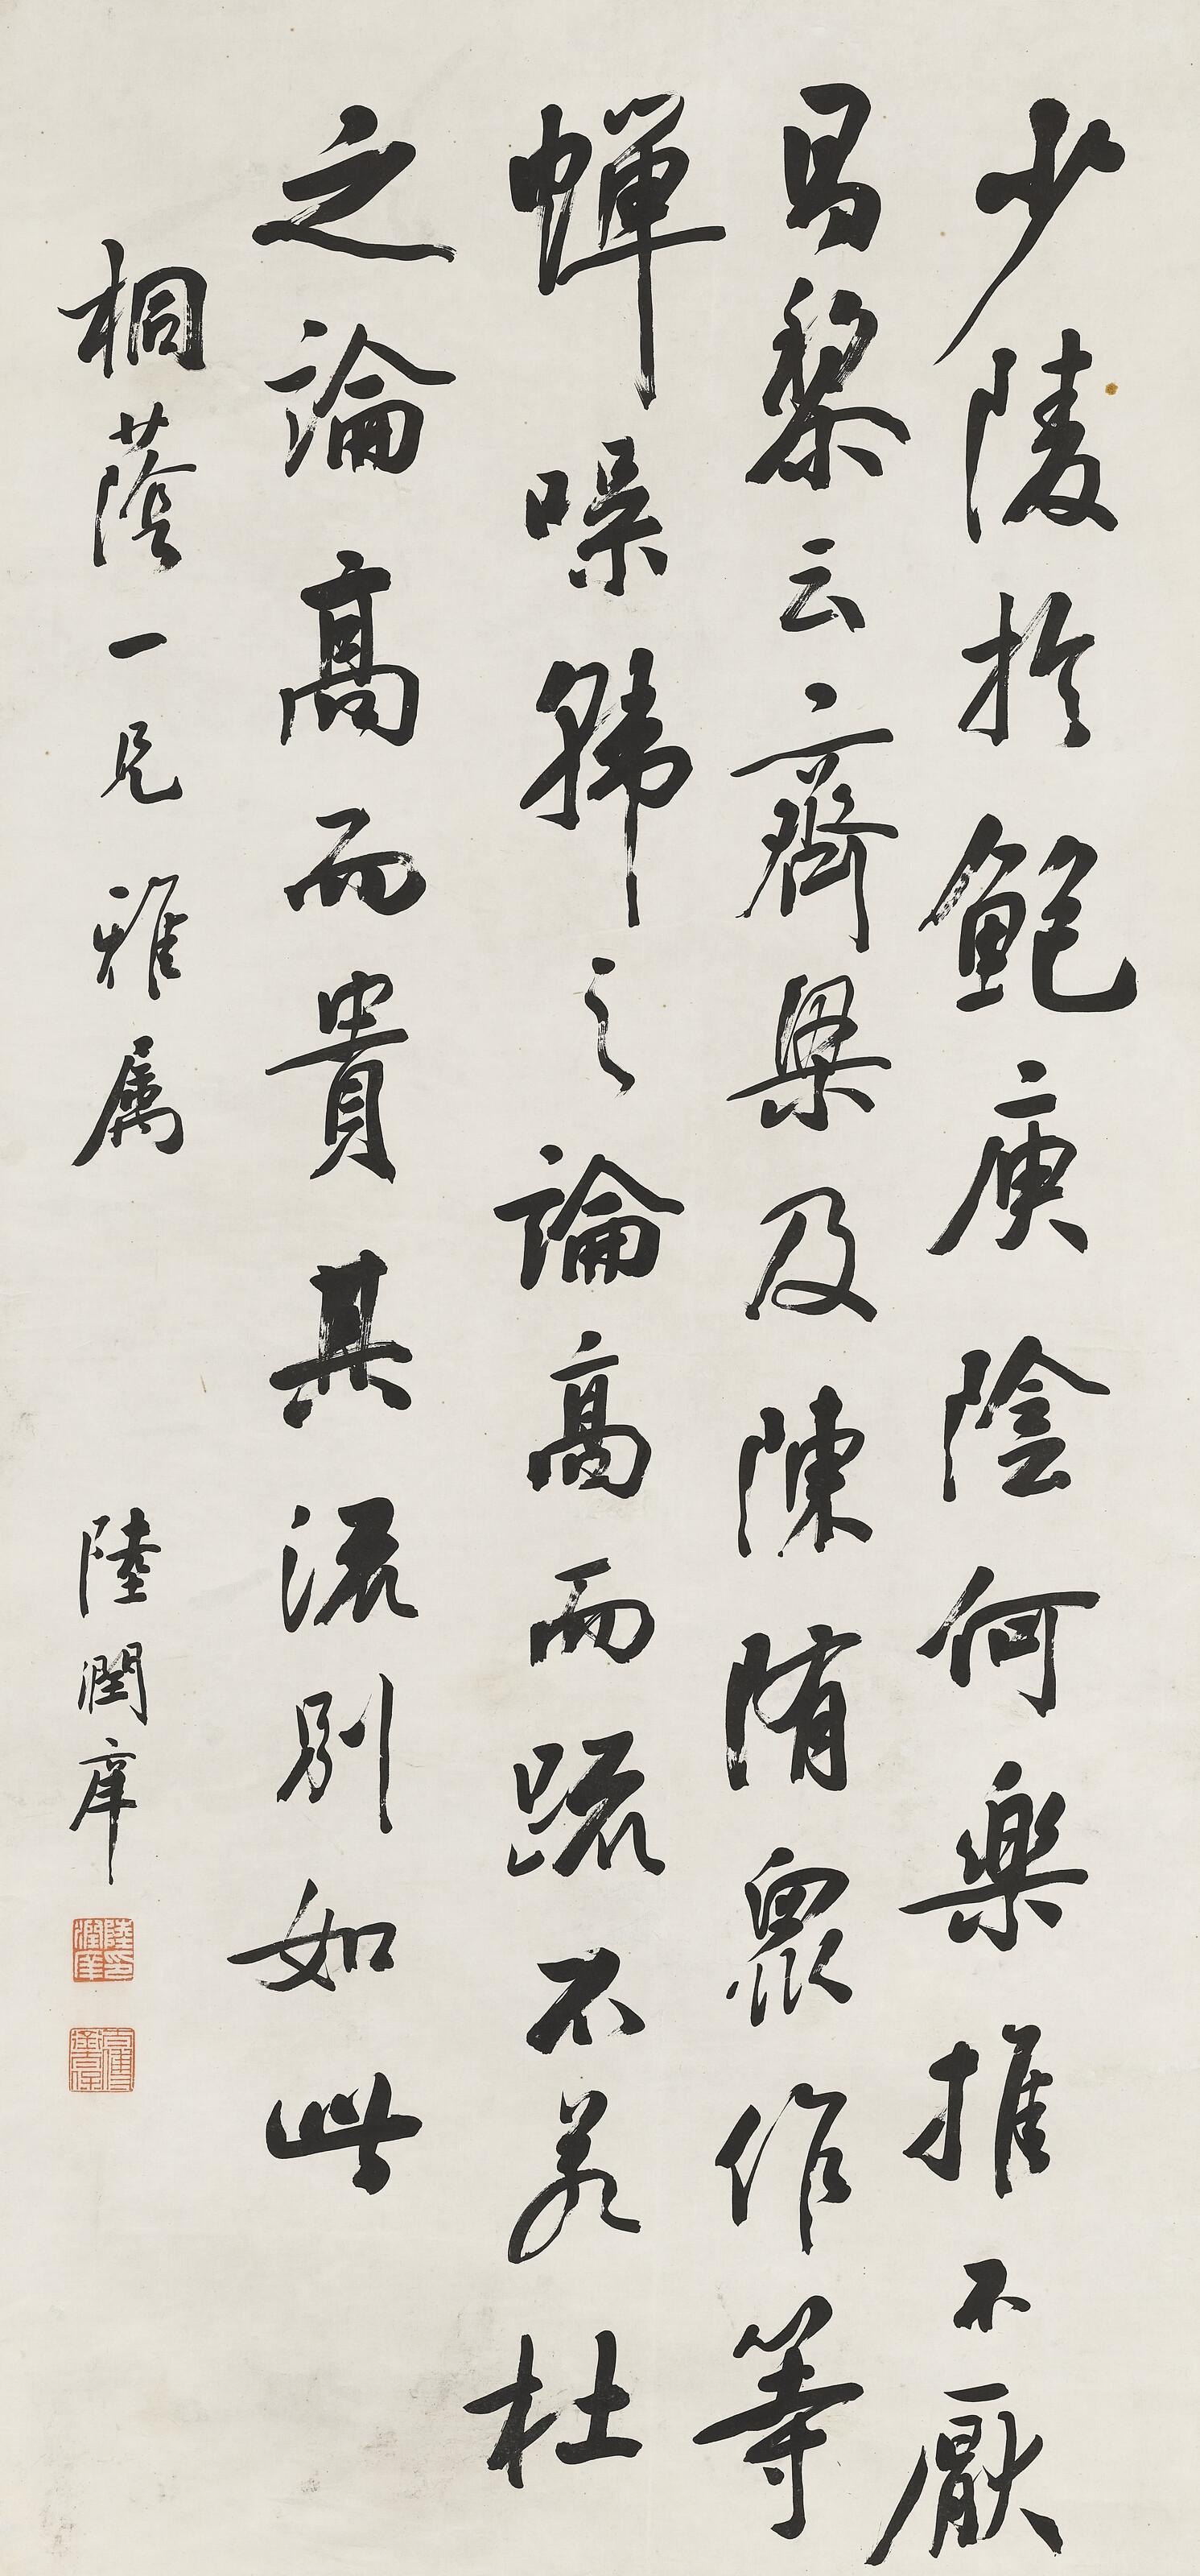 少陵於鮑庾陰何樂推不厭
昌黎云齊梁及陳隋衆作等
蟬噪韓之論高而疏不若杜
之論高而貴其流別如此
桐蔭一兄雅屬
陸潤庠